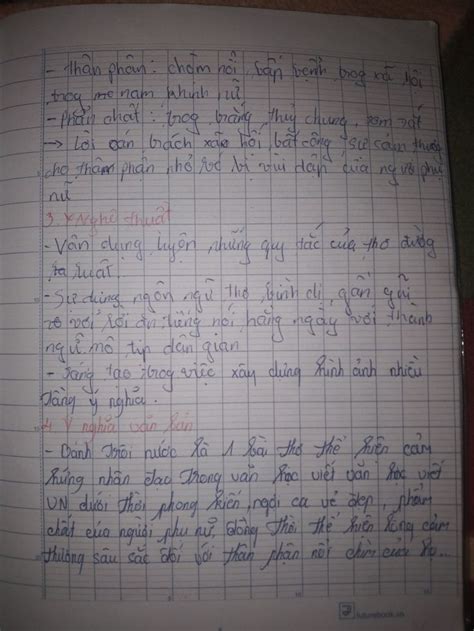 - thân phận: chậm nổi, bấp bệnh trog xã hội
trog nam khinh nữ
- phẩm chất: trog trắng, thuỷ chung, son sắt
→ Lời oán trách xão hội bất công sự cảm thươg
cho thâm phận nhỏ bé bị vùi dập của ng` phụ
nữ
3. Nghệ thuật
- Vận dụng luyện những quy tắc của thơ đườg
luật.
- Sử dụng ngôn ngữ thơ bình dị, gần gũi
với lời ăn tiếng nói hằng ngày với thành
ngữ, mô típ dân gian
- Sáng tạo trog việc xây dựng hình ảnh nhiều
tầng ý nghĩa.
4. Ý nghĩa văn bản
- Bánh trôi nước là 1 bài thơ thể hiện cảm
hứng nhân đạo trong văn học viết văn học viết
VN dưới thời phong kiến, ngợi ca vẻ đẹp, phẩm
chất của người phụ nữ, đồng thời thể hiện lòng cảm
thương sâu sắc đối với thân phận nổi chìm của họ..
futurebook.vn